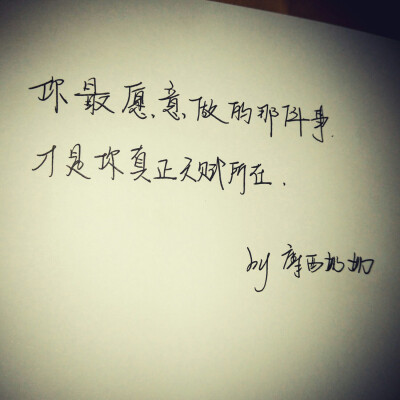 你最愿意做的那件事.
才是你真正天赋所在.
by 摩西奶奶